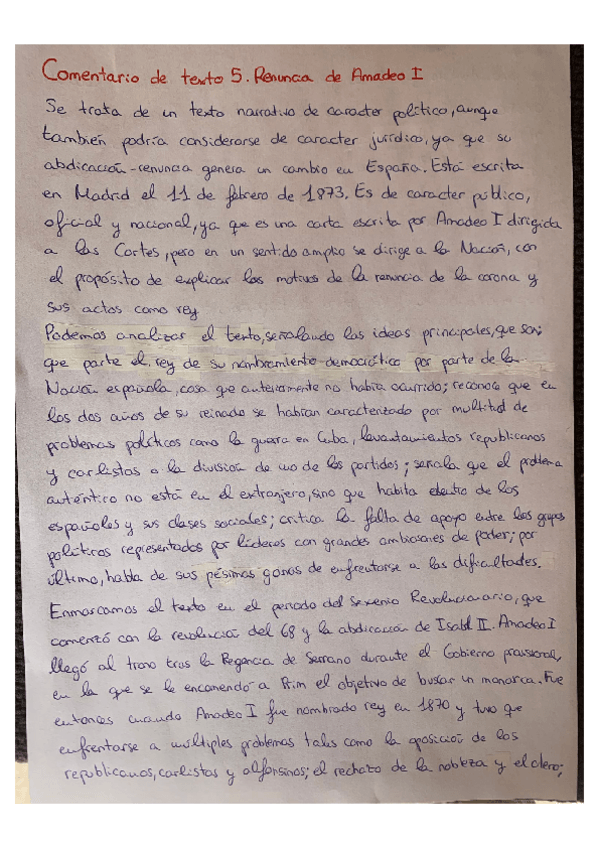 Comentario de texto 5. Renuncia de Amadeo I
Se trata de un texto narrativo de caracter político, aunque
también podría considerarse de caracter jurídico, ya que su
abdicación-renuncia genera un cambio en España. Está escrita
en Madrid el 11 de febrero de 1873. Es de caracter público,
oficial y nacional, ya que es una carta escrita por Amadeo I dirigida
a las Cortes, pero en un sentido amplio se dirige a la Nación, con
el propósito de explicar los motivos de la renuncia de la corona y
sus actos como rey
Podemos analizar el texto, señalando las ideas principales, que son:
que parte el rey de su nombramiento democrático por parte de la
Nación española, cosa que anteriormente no había ocurrido; reconoce que en
los dos años de su reinado se habían caracterizado por multitud de
problemas políticos como la guerra en Cuba, levantamientos republicanos
y carlistas o la división de uno de los partidos; señala que el problema
auténtico no está en el extranjero, sino que habita dentro de los
españoles y sus clases sociales; critica la falta de apoyo entre los grupos
políticos representados por líderes con grandes ambiciones de poder; por
último, habla de sus pésimas ganas de enfrentarse a las dificultades.
Enmarcamos el texto en el periodo del Sexenio Revolucionario, que
comenzó con la revolución del 68 y la abdicación de Isabel II. Amadeo I
llegó al trono tras la Regencia de Serrano durante el Gobierno provisional,
en la que se le encomendó a Prim el objetivo de buscar un monarca. Fue
entonces cuando Amadeo I fue nombrado rey en 1870 y tuvo que
enfrentarse a multiples problemas tales como la oposición de los
republicanos, carlistas y alfonsinos; el rechazo de la nobleza y el clero;